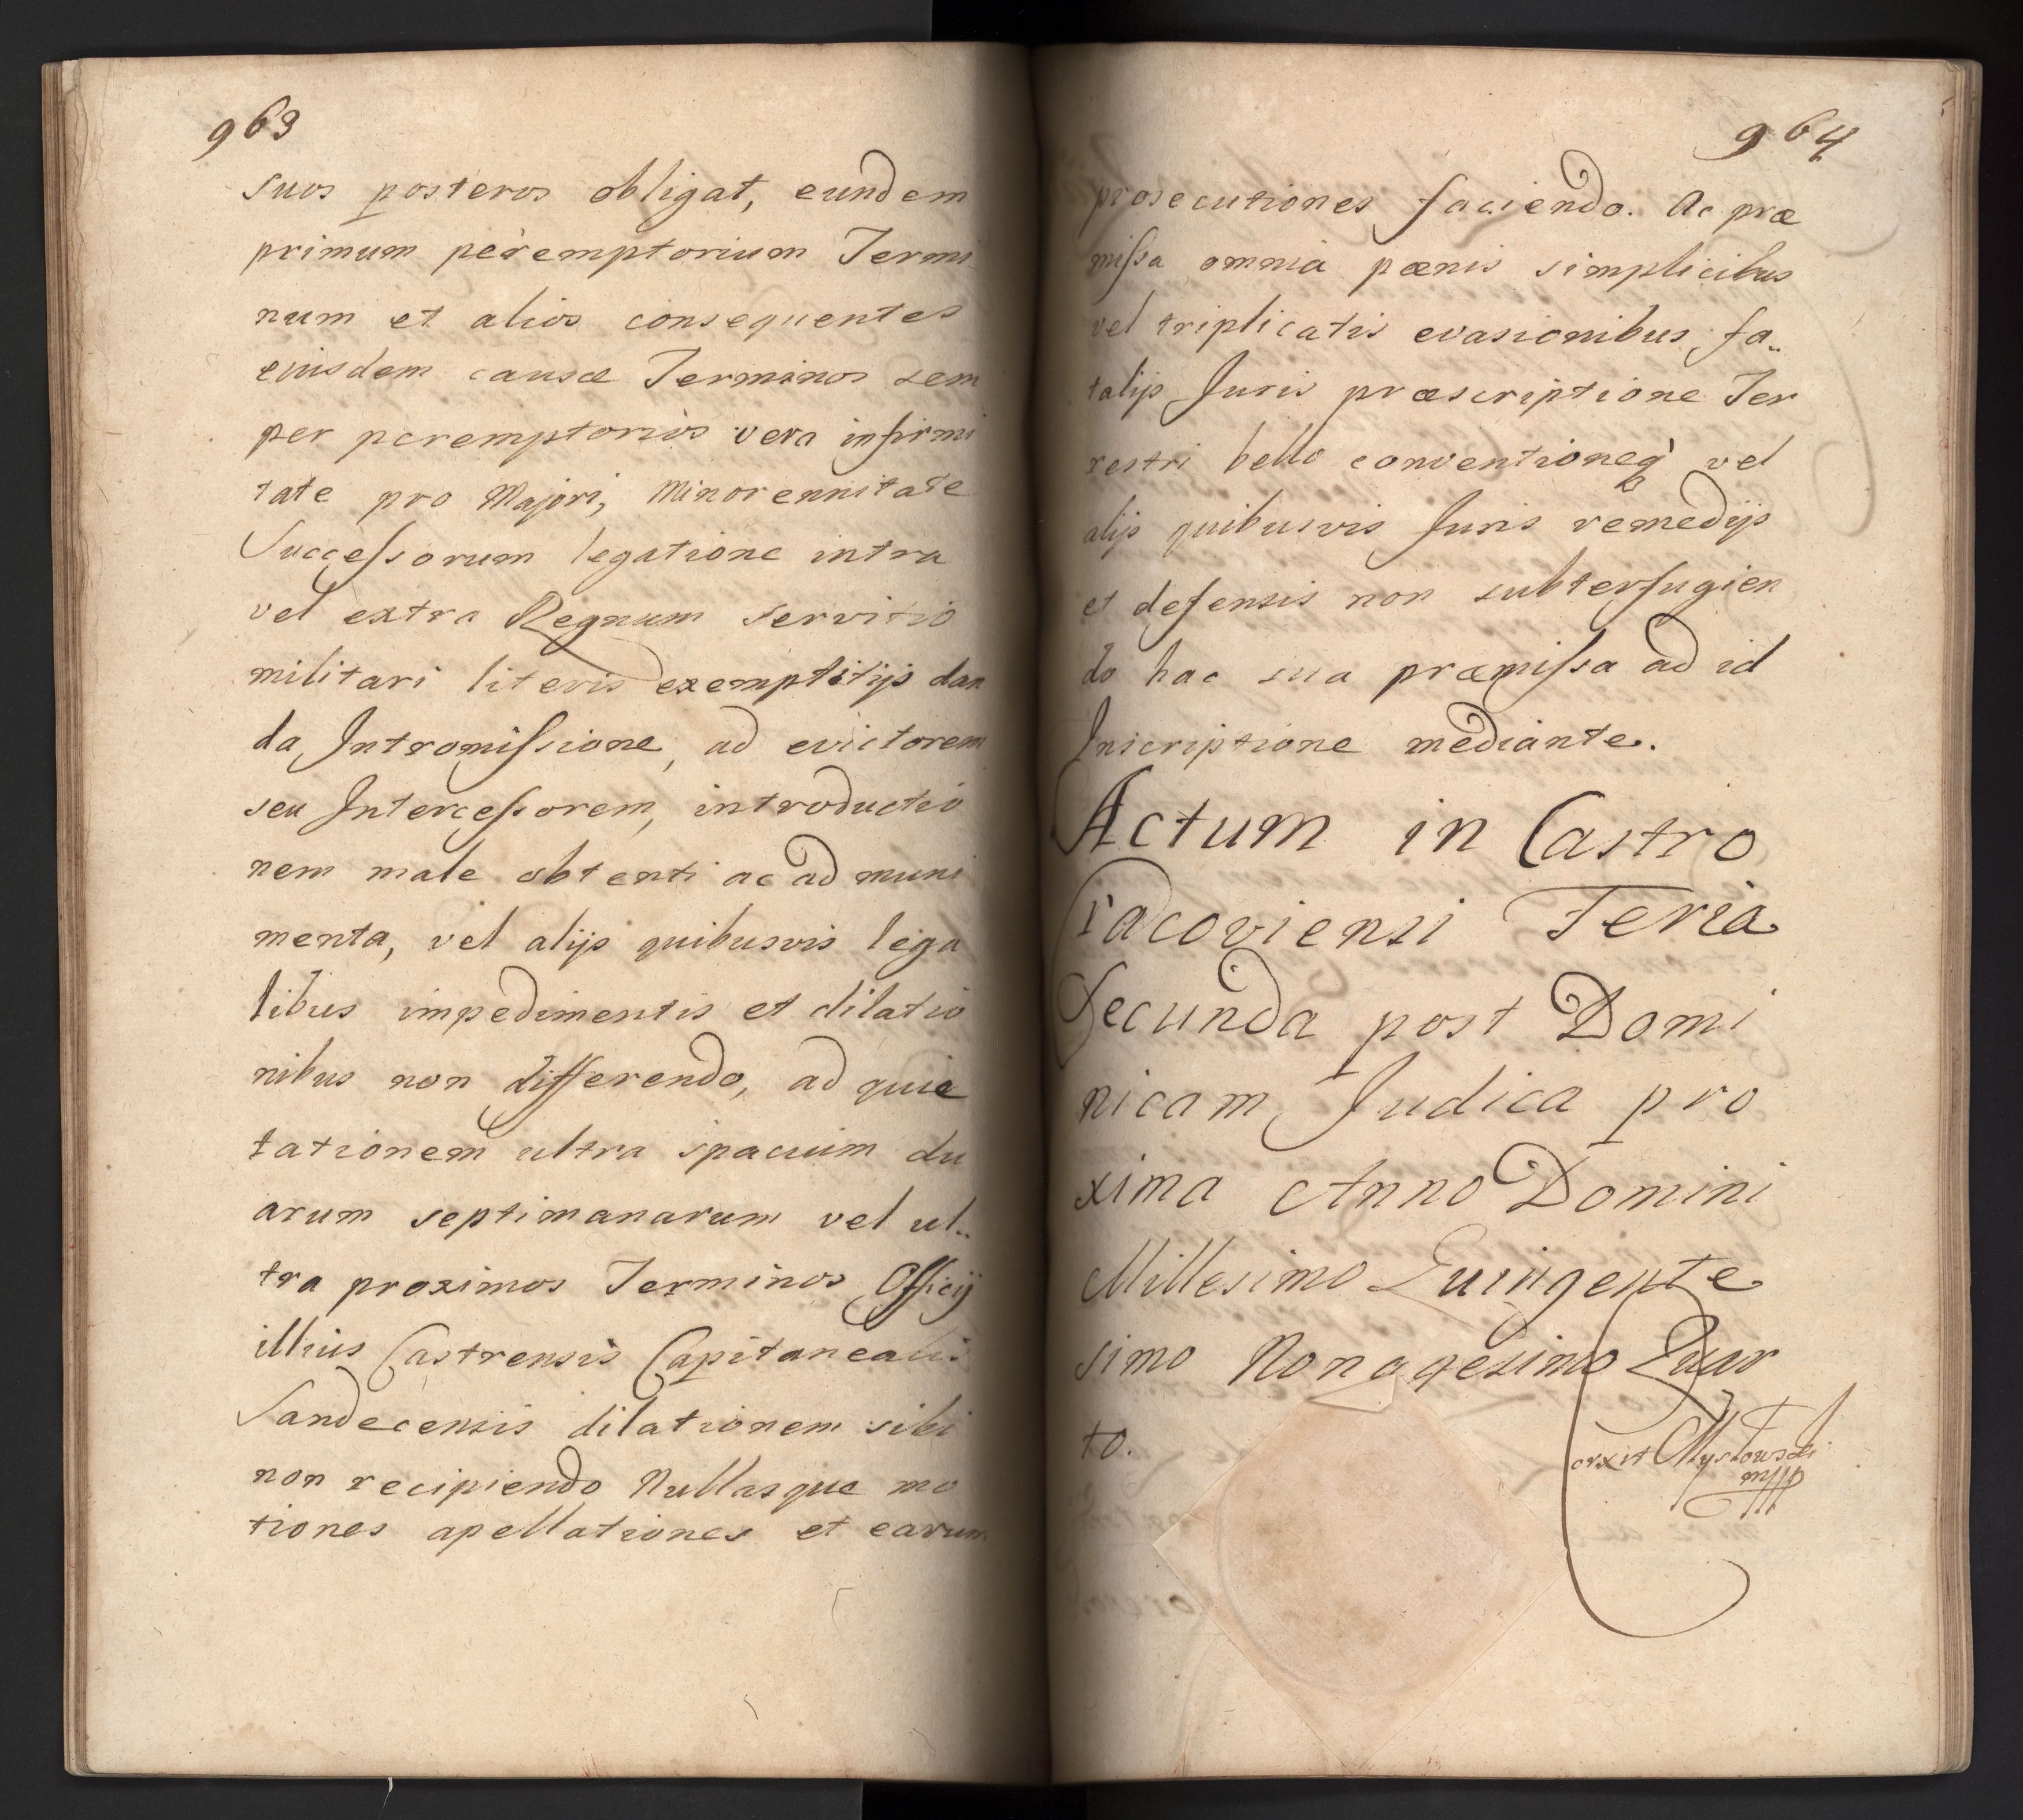 963
suos posteros obligat, eundem
primum peremptorium Termi
num et alios consequentes
eiusdem causæ Terminos sem
per peremptorios vera infirmi
tate pro Majori, Minorennitate
Successorum legatione intra
vel extra Regnum servitio
militari literis exemptitijs dan
da Intromissione, ad evictorem
seu Intercessorem, introductio
nem male obtenti ac ad muni
menta, vel alijs quibusvis lega
libus impedimentis et dilatio
nibus non differendo, ad quie
tationem ultra spacium du
arum septimanarum vel ul..
tra proximos Terminos Officij
illius Castrensis Capitanealis
Sandecensis dilationem sibi
non recipiendo Nullasque mo
tiones apellationes et earum
964
prosecutiones faciendo. Ac præ
missa omnia pœnis simplicibus
vel triplicatis evasionibus fa..
talijs Juris præscriptione Ter
restri bello conventioneq vel
alijs quibusvis Juris remedijs
et defensis non subterfugien
do hac sua præmissa ad id
Inscriptione mediante.
Actum in Castro
racoviensi Feria
Secunda post Domi
nicam Judica pro
xima Anno Domini
Millesimo Quingente
simo Nonagesimo Quar
to.